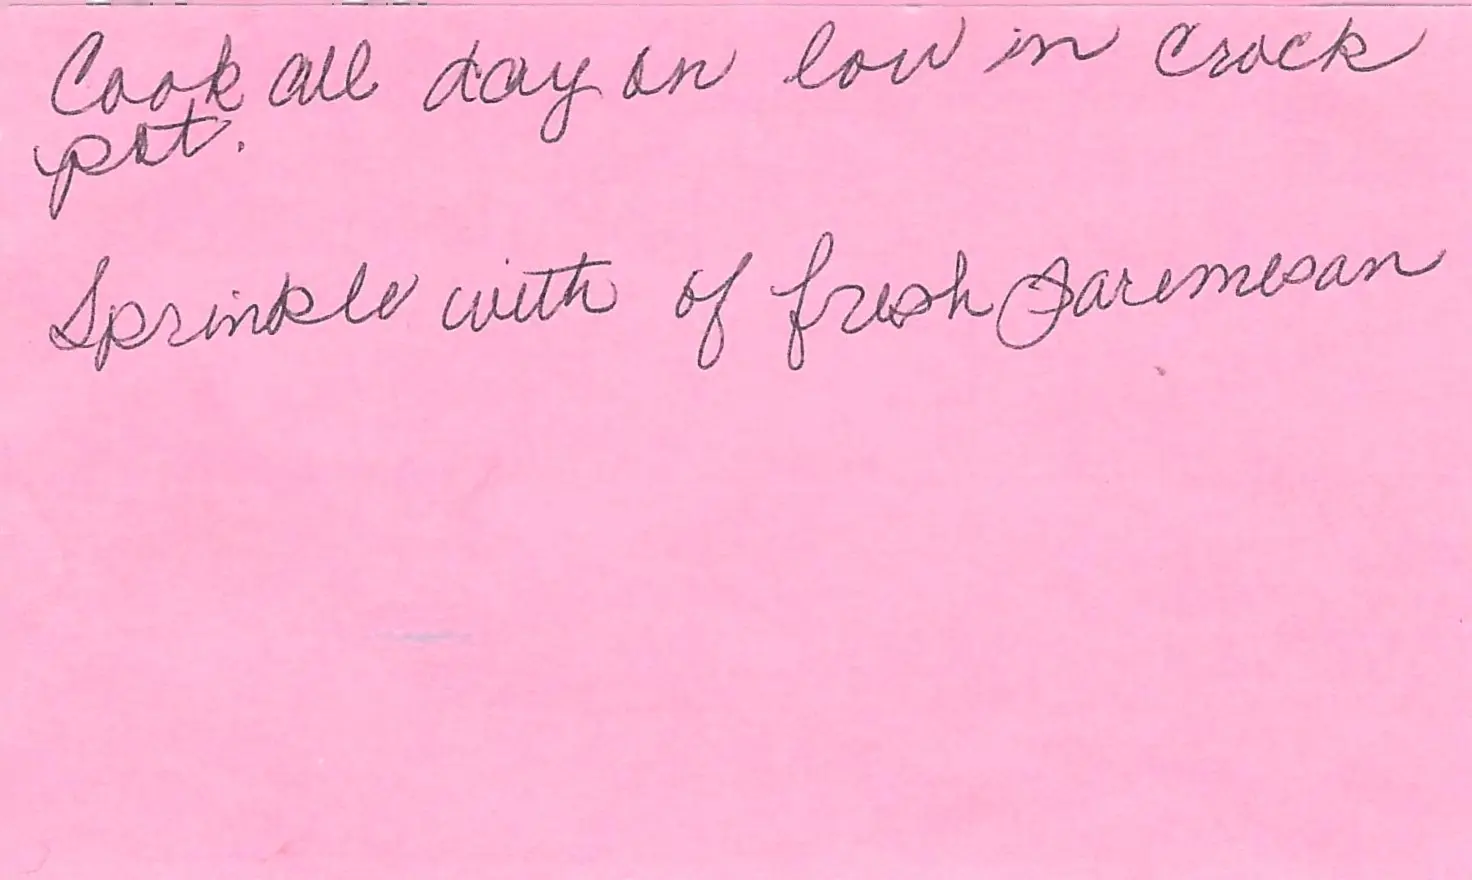 Cook all day on low in crock
pot.
Sprinkle with of fresh Paremesan